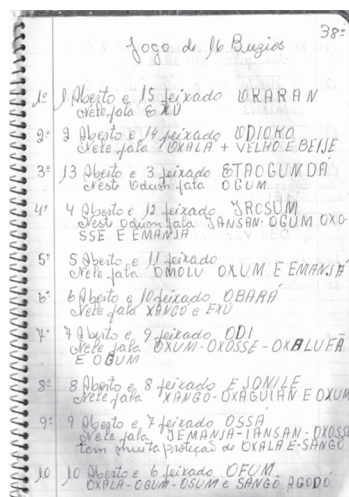 38=
Jogo de 16 Buzios
1º 1 Aberto e 15 feixado OKARAN
Nete fala EXÚ
2º 2 Aberto e 14 feixado ODIOKO
Nete fala OXALA + VELHO E BEIJE
3º 13 Aberto e 3 feixado ETAOGUNDÁ
Nesti Odum fala OGUM
4º 4 Aberto e 12 feixado IROSUM
Nesti Odum fala IANSAN-OGUM OXO-
SSE E EMANJA
5º 5 Aberto e 11 feixado
Nete fala OMOLU OXUM E EMANJÁ
6º 6 Aberto e 10 feixado OBARÁ
Nete fala XANGO e EXÚ
7º 7 Aberto e 9 feixado ODI
Nete fala OXUM-OXOSSE-OXALUFÃ
E OGUM
8º 8 Aberto e 8 feixado EJONILE
Nete fala XANGO-OXAGUIAN E OXUM
9º 9 Aberto e 7 feixado OSSÁ
Nete fala IEMANJA-IANSAN-OXOSS
tem muita proteção de OXALA E SANGÔ
10 10 Aberto e 6 feixado OFUM
OXALA-OGUM-OSUM e SANGÔ AGODÓ